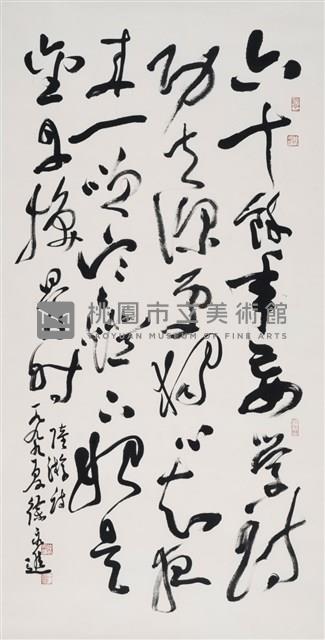 六十餘年妄学詩
功夫深處獨心知夜
来一咲寒燈下始是
金丹換骨時
陸游詩
一九九九夏徐永進
桃園市立美術館
TAOYUAN MUSEUM OF FINE ARTS